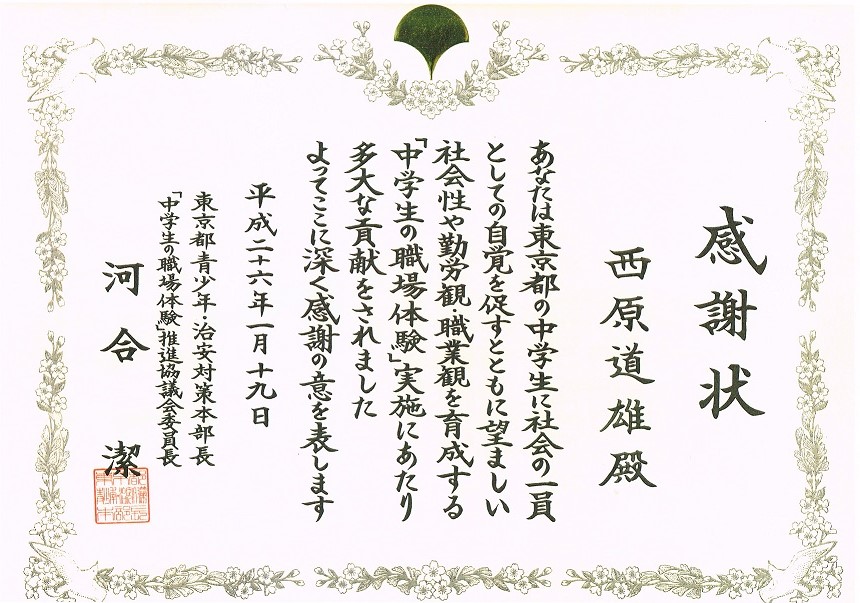 感謝状
西原道雄殿
あなたは東京都の中学生に社会の一員
としての自覚を促すとともに望ましい
社会性や勤労観・職業観を育成する
「中学生の職場体験」実施にあたり
多大な貢献をされました
よってここに深く感謝の意を表します
平成二十六年一月十九日
東京都青少年・治安対策本部長
「中学生の職場体験」推進協議会委員長
河合 潔